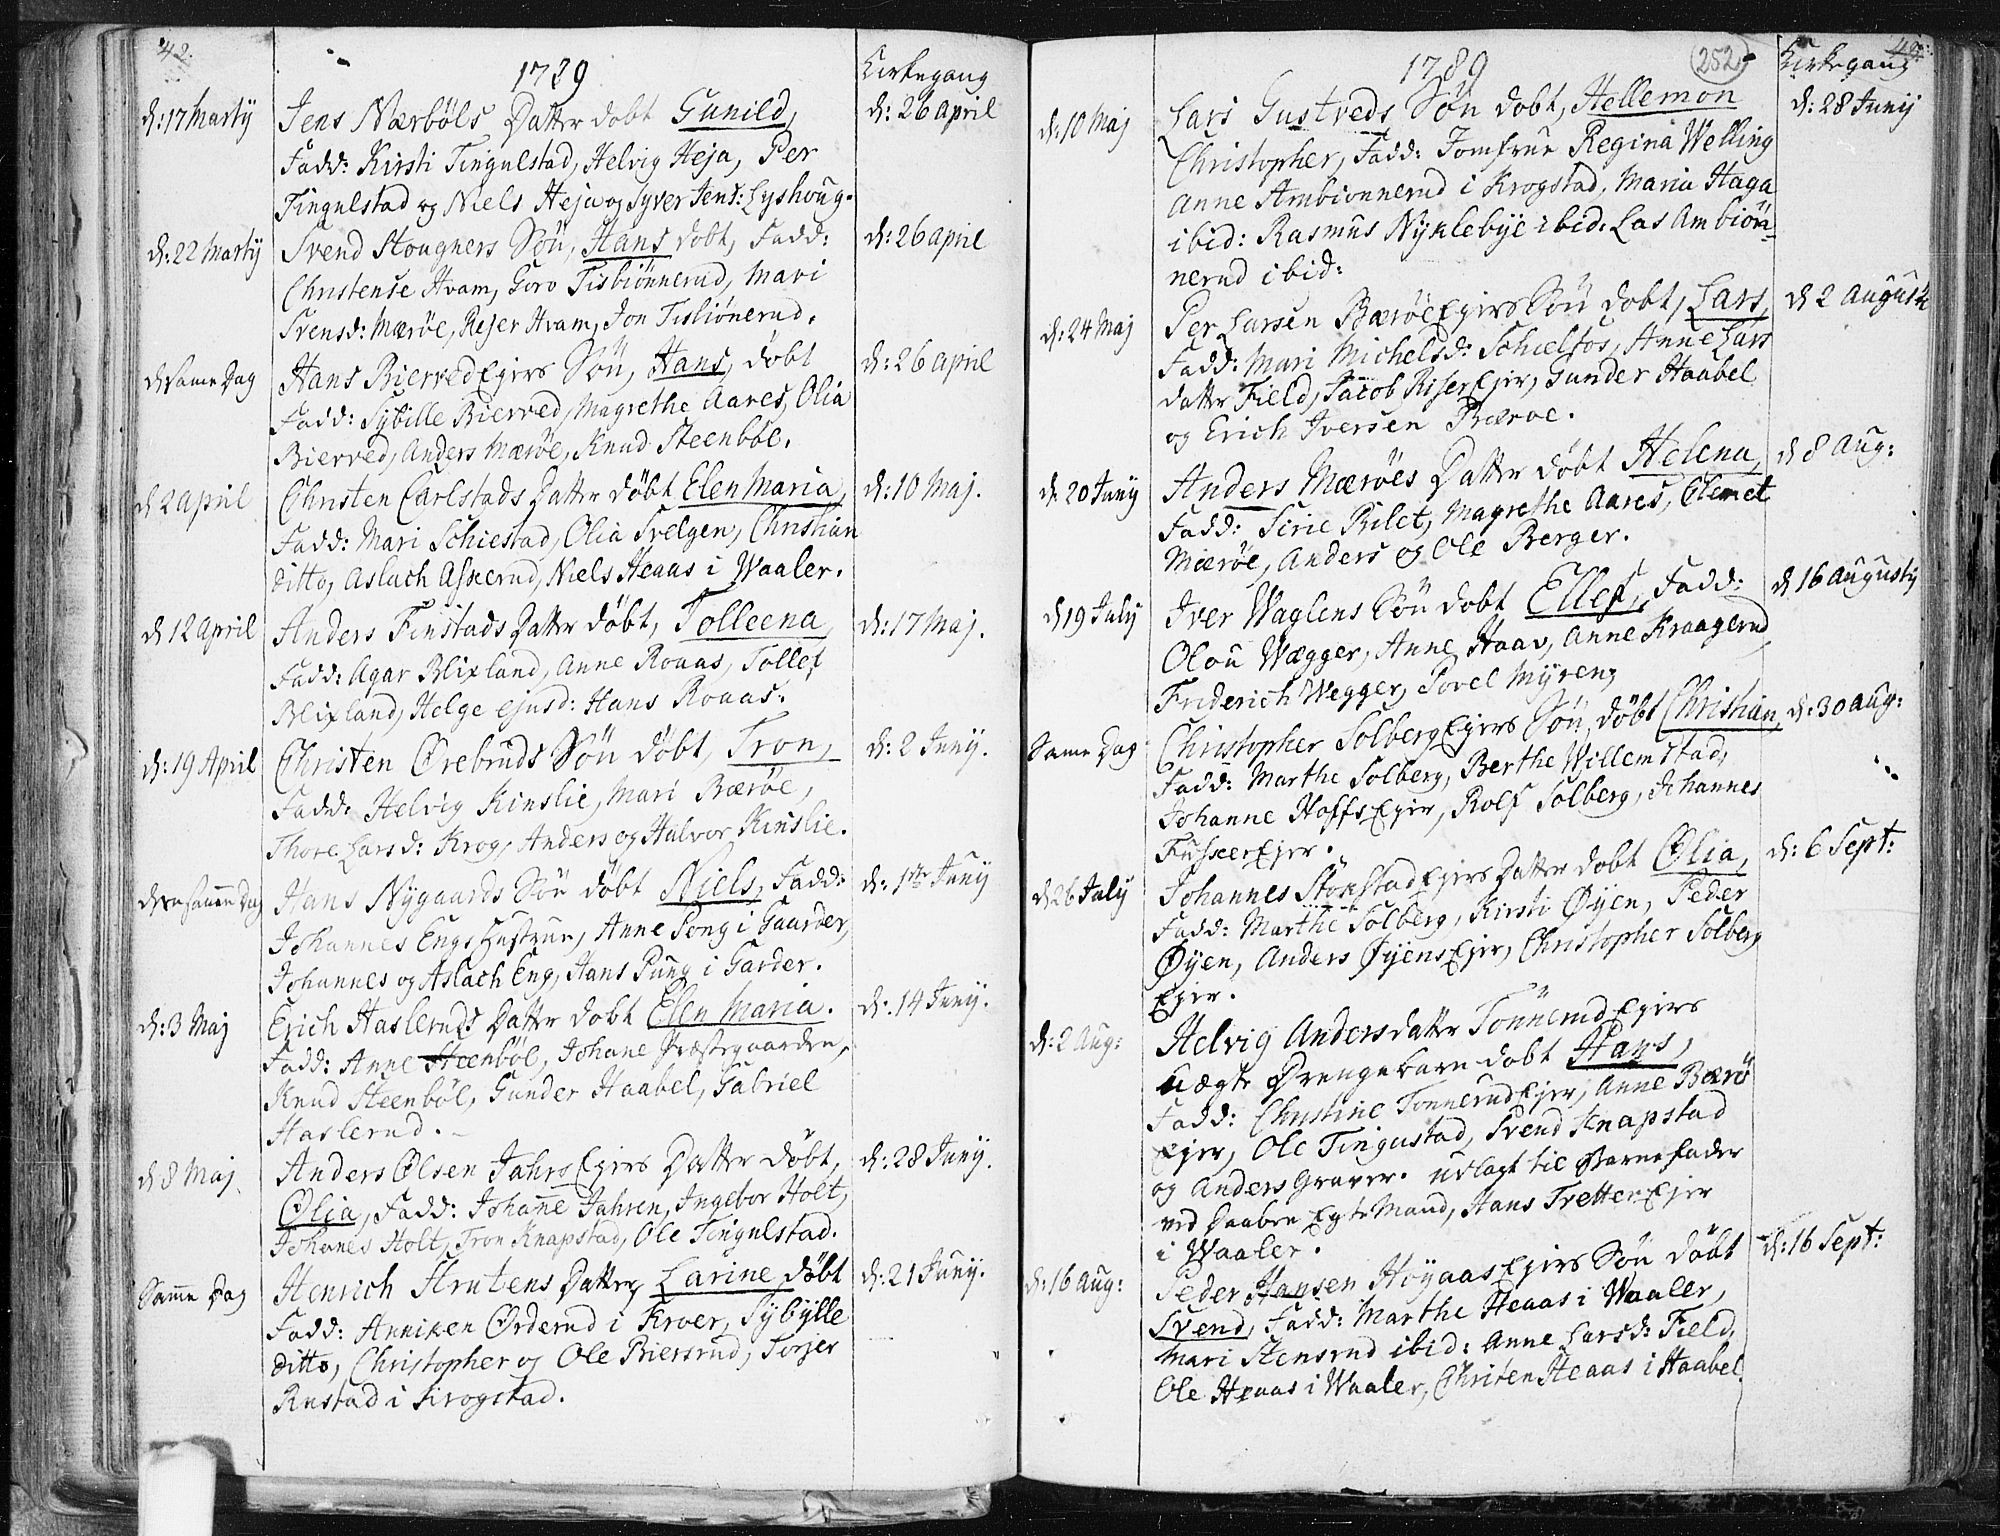 42.
1789
Kirkegang
d: 17 Martij
Jens Nærböls Datter döbt Gunild,
d: 26 April
Fadd: Kirsti Tingulstad, Helvig Heja, Per
Tingulstad og Niels Heja og Syver Jens: Lyshoug.
d: 22 Martij
Svend Skougners Sön, Hans döbt, Fadd:
d: 26 April
Christense Hvam, Goro Tisbiönnerud, Mari
Svensd: Mæröe, Rejer Hvam, Jon Tisbiönerud.
d: Same Dag
Hans Bierved Ejers Sön, Hans, döbt
d: 26 April
Fadd: Sybille Bierved, Magrethe Aares, Olia
Bierved, Anders Mæröe, Knud Steenböl.
d 2 April
Christen Carlstads Datter döbt Elen Maria,
d: 10 Maj.
Fadd: Mari Schiestad, Olia Svelgen, Christian
ditto, Aslach Askerud, Niels Heaas i Waaler.
d 12 April
Anders Finstads Datter döbt, Tolleena,
d: 17 Maj.
Fadd: Agar Blixland, Anne Roaas, Tollef
Blixland, Helge ejusd: Hans Roaas.
d: 19 April
Christen Örebruds Sön döbt, Tron,
d: 2 Junij.
Fadd: Helvig Kinslie, Mari Bæröe,
Thore Larsd: Krog, Anders og Halvor Kinslie.
den samen Dag
Hans Nygaards Sön döbt Niels, Fadd:
d: 1ste Junij
Johannes Engs Hustrue, Anne Pong i Gaarder,
Johannes og Aslach Eng, Hans Pung i Garder.
d: 3 Maj
Erich Hasleruds Datter dobt Elen Maria.
d: 14 Junij.
Fadd: Anne Steenböl, Johane Præstegaarden,
Knud Steenböl, Gunder Haabel, Gabriel
Haslerud.
d 8 Maj
Anders Olsen Jahrs Ejers Datter döbt,
d: 28 Junij.
Olia, Fadd: Johañe Jahren, Ingebor Holt,
Johañes Holt, Tron Knapstad, Ole Tingulstad.
Samme Dag
Henrich Strutens Datter, Larine döbt
d: 21 Junij.
Fadd: Anniken Örderud i Kroer, Sybylle
ditto, Christopher og Ole Biersrud, Torjer
Rustad i Krogstad.
252
42
1789
Kirkegang
d: 10 Maj
Lars Gustveds Sön döbt, Hellemon
d: 28 Junij
Christopher, Fadd: Jomfrue Regina Welling
Anne Ambionnerud i Krogstad, Maria Haga
ibid: Rasmus Nyklebye ibid: Las Ambiön-
nerud ibid:
d: 24 Maj
Per Larsen Bæröe Ejers Sön döbt, Lars,
d 2 Augusti
Fadd: Mari Michelsd: Schielfos, Anne Lars
datter Field, Jacob Riser Ejer, Gunder Haabel
og Erich Iversen Bæroe.
d: 20 Junij
Anders Mæröes Datter döbt Helena,
d 8 Aug:
Fadd: Sirie Bilet, Magrethe Aares, Clemet
Mæröe, Anders og Ole Berger.
d 19 July
Iver Waglens Sön dobt Ellef, Fadd:
d 16 Augustij
Olou Wægger, Anne Haav, Anne Kraagerud
Friderich Wegger, Povel Myren,
Same Dag
Christopher Solberg Ejers Sön döbt Christian,
d: 30 Aug:
Fadd: Marthe Solberg, Berthe Willemstad,
Johanne Hoffs Ejer, Rolf Solberg, Johannes
Fusker Ejer.
d 26 July
Johannes Skökstad Ejers Datter döbt Olia,
d: 6 Sept:
Fadd: Marthe Solberg, Kirsti Öyen, Peder
Öyen, Anders Öyens Ejer, Christopher Solberg
Ejer.
d: 2 Aug:
Helvig Andersdatter Tönnerud Ejers
uægte Drengebarn döbt Hans,
Fadd: Christine Tonnerud Ejer, Anne Bærö
Ejer, Ole Tingustad, Svend Knapstad
og Anders Graver. udlagt til Barnefader
ved Daaben Egte Mand, Hans Tretter Ejer
i Waaler.
d: 16 Aug:
Peder Hansen Höyaas Ejers Sön döbt
d: 16 Sept:
Svend, Fadd: Marthe Heaas i Waaler,
Mari Stensrud ibid: Anne Larsd: Field,
Ole Heaas i Waaler, Christen Heaas i Haabel